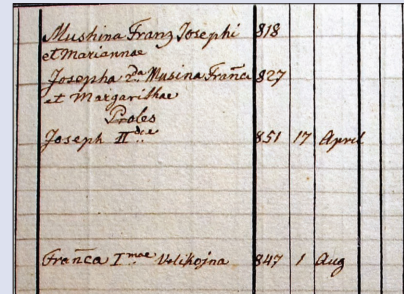 Mushina Franz Josephi 818
et Mariannae
Josepha 2da Musina Franca 827
et Margarithae
Proles
Joseph II dae 851 17 April
Franca I mae Velikojna 847 1 Aug